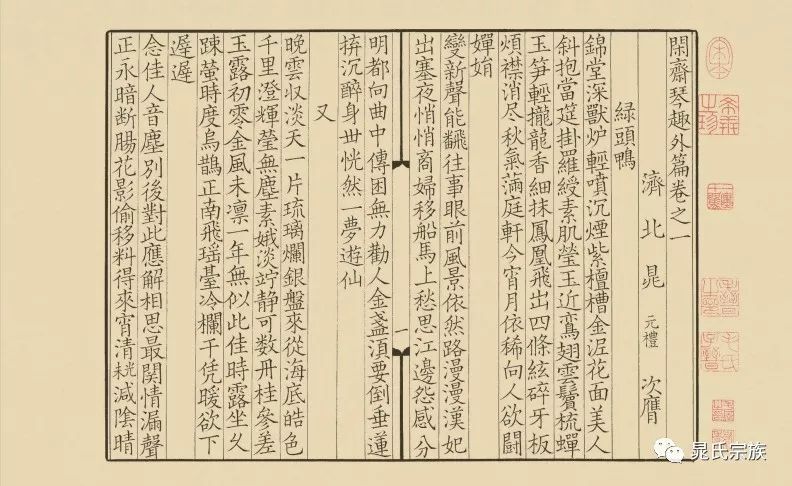 閑齋琴趣外篇卷之一
濟北晁元禮次膺
緑頭鴨
錦堂深獸炉輕噴沉煙紫檀槽金泥花面美人
斜抱當筵掛羅綬素肌瑩玉近鸞翅雲鬢梳蟬
玉笋輕攏龍香細抹鳳凰飛出四條絃碎牙板
煩襟消尽秋氣滿庭軒今宵月依稀向人欲鬭
嬋娟
變新聲能飜往事眼前風景依然路漫漫漢妃
出塞夜悄悄商婦移船馬上愁思江邊怨感分
一
明都向曲中傳困無力勸人金盞湏要倒垂蓮
拚沉醉身世恍然一夢遊仙
又
晚雲収淡天一片琉璃爛銀盤來從海底皓色
千里澄輝瑩無塵素娥淡竚静可数丹桂參差
玉露初零金風未凛一年無似此佳時露坐久
踈螢時度烏鵲正南飛瑶臺冷欄干凭暖欲下
遲遲
念佳人音塵別後對此應解相思最関情漏聲
正永暗断腸花影偷移料得來宵清光減陰晴
晁氏宗族